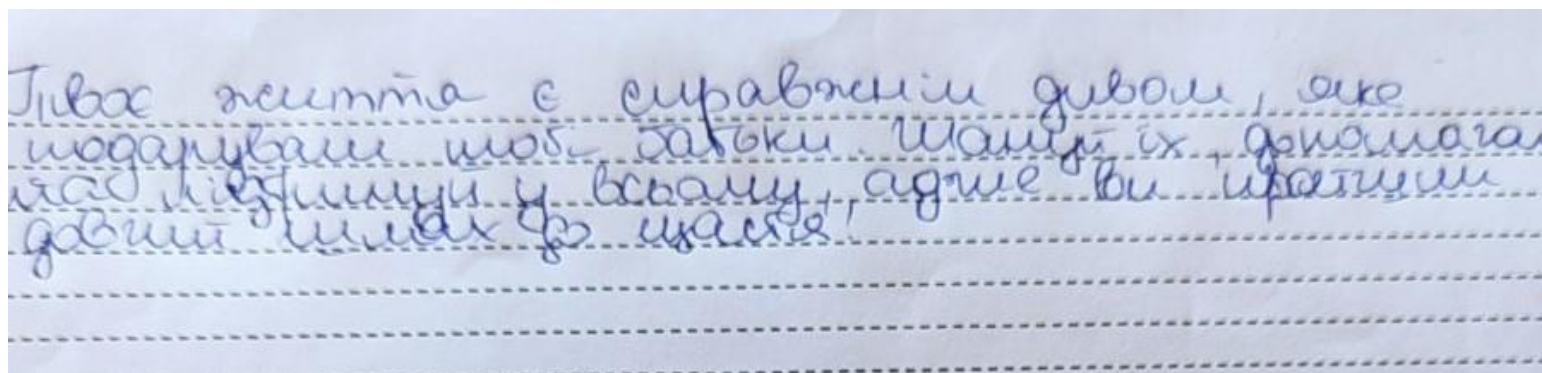 Твоє життя є справжнім дивом, яке
подарували тобі батьки. Шануй їх, допомагай
підтримуй у всьому, адже ви
довгий шлях до щастя!